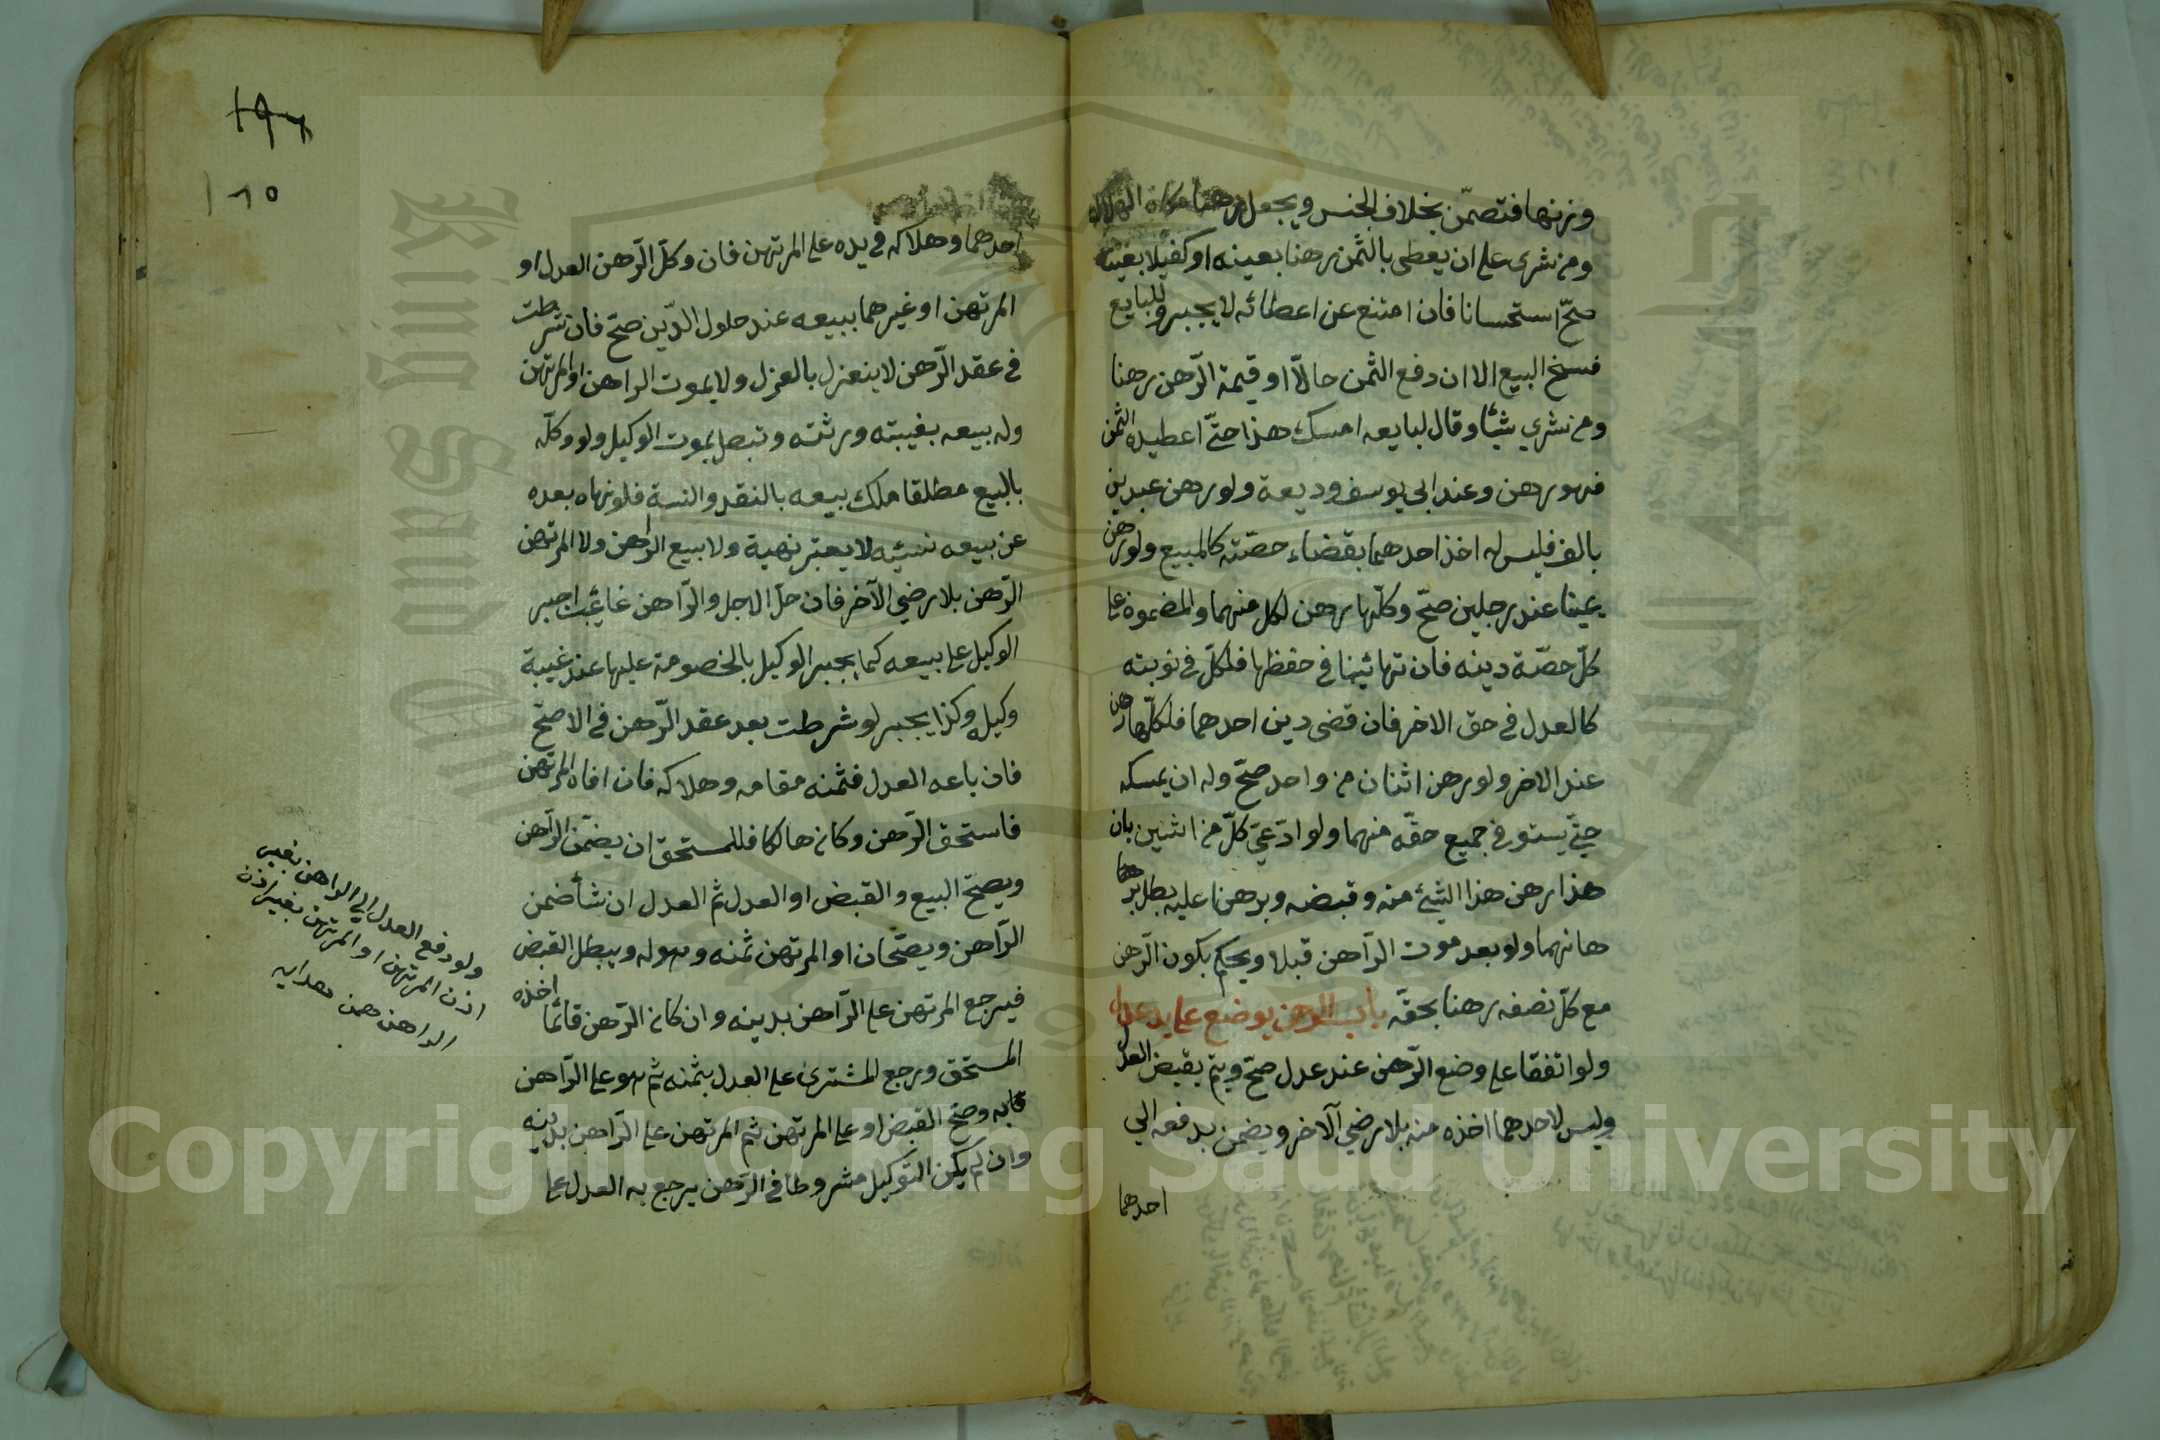 وزنها فتضمن بخلاف الجنس ويجعل رهنا مكان الهالك
ومن شرى على ان يعطى بالثمن رهنا بعينه او كفيلا بعينه
صحّ استحسانا فان امتنع عن اعطائه لا يجبر وللبايع
فسخ البيع الا ان دفع الثمن حالّا او قيمة الرّهن رهنا
ومن شرى شيئا وقال لبايعه امسك هذا حتّى اعطيك الثمن
فهو رهن وعند ابى يوسف وديعة ولو رهن عبدين
بالف فليس له اخذ احدهما بقضاء حصّته كالمبيع ولو رهن
عينا عند رجلين صحّ وكلّها رهن لكل منهما والمضمون على
كلّ حصّة دينه فان تهائيا فى حفظها فلكلّ فى نوبته
كالعدل فى حق الاخر فان قضى دين احدهما فكلّها رهن
عند الاخر ولو رهن اثنان من واحد صحّ وله ان يمسكه
حتّى يستوفى جميع حقّه منهما ولو ادّعى كلّ من اثنين بان
هذا رهن هذا الشئ منه وقبضه وبرهنا عليه بطل بر
هانهما ولو بعد موت الرّاهن قبلا ويحكم بكون الرّهن
مع كلّ نصفه رهنا بحقّه باب الرهن يوضع على يد عدل
ولو اتفقا على وضع الرّهن عند عدل صحّ ويتم بقبض العدل
وليس لاحدهما اخذه منه بلا رضى الآخر ويضمن بدفعه الى
احدهما
١٨٥
احدهما وهلاكه فى يده على المرتهن فان وكّل الرّاهن العدل او
المرتهن او غيرهما ببيعه عند حلول الدّين صحّ فان شرطت
فى عقد الرّهن لا ينعزل بالعزل ولا بموت الراهن او المرتهن
وله بيعه بغيبته ورثته وتبطل بموت الوكيل ولو وكّله
بالبيع مطلقا ملك بيعه بالنقد والنسية فلو نهاه بعده
عن بيعه نسيئه لا يعتبر نهية ولا بيع الراهن ولا المرتهن
الرّهن بلا رضى الآخر فان حلّ الاجل والرّاهن غائب اجبر
الوكيل على بيعه كما يجبر الوكيل بالخصومة عليها عند غيبة
وكيله وكذا يجبر لو شرطت بعد عقد الرّهن فى الاصحّ
فان باعه العدل فثمنه مقامه وهلاكه فان افاه المرتهن
فاستحق الرّهن وكان هالكا فللمستحق ان يضمّن الرّاهن
ويصحّ البيع والقبض او العدل ثم العدل ان شأ ضمن
الرّاهن ويصحّان او المرتهن ثمنه وهو له ويبطل القبض
فيرجع المرتهن على الرّاهن بدينه وان كان الرّهن قائما اخذه
المستحق ورجع المشترى على العدل بثمنه ثم هو على الرّاهن
به وصحّ القبض او على المرتهن ثم المرتهن على الرّاهن بدينه
وان لم يكن التوكيل مشروطا فى الرّهن يرجع به العدل على
ولو دفع العدل الى الراهن بغير
اذن المرتهن او المرتهن بغير اذن
الراهن ضمن هدايه
King Saud University
Copyright © King Saud University